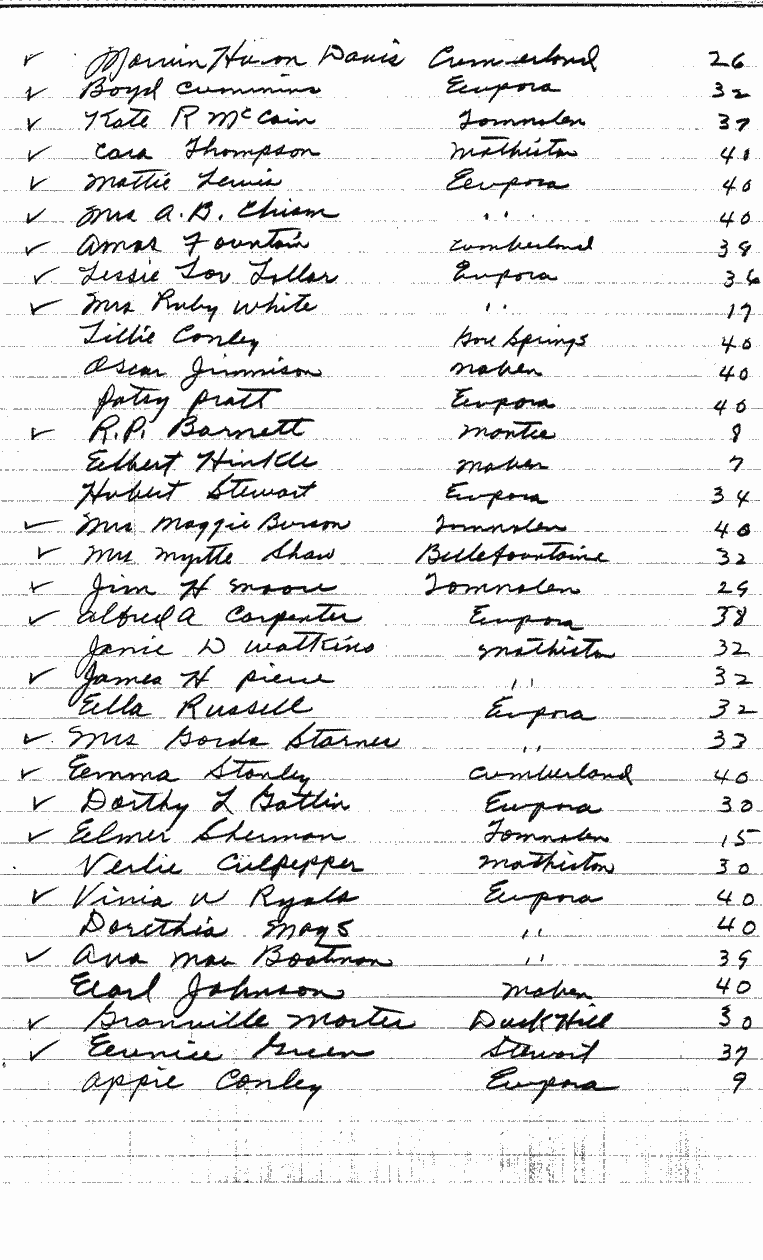 ✓ Marvin Huron Davis Cumberland 26
✓ Boyd Cummins Eupora 32
✓ Kate R McCain Tomnolen 37
✓ Cara Thompson Mathiston 40
✓ Mattie Lewis Eupora 40
✓ Mrs A.B. Chism " 40
✓ Amos Fountain Cumberland 38
✓ Lessie Lov Eupora 36
✓ Mrs Ruby White " 17
Lillie Conley Gore Springs 40
Oscar Jimmison Maben 40
Patsy Pratt Eupora 40
✓ R.P. Barnett 8
Elbert Hinkle Maben 7
Hubert Stewart Eupora 34
✓ Mrs Maggie Burson Tomnolen 40
✓ Mrs Myrtle Shaw Bellefountaine 32
✓ Jim H Moore Tomnolen 29
✓ Alfred A Carpenter Eupora 38
Janie D Watkins Mathiston 32
✓ James H Pierce " 32
Ella Russell Eupora 32
✓ Mrs Starnes " 33
✓ Emma Stanley Cumberland 40
✓ Dorthy L Gatlin Eupora 30
✓ Elmer Sherman Tomnolen 15
Verlie Culpepper Mathiston 30
✓ Vinia W Ryals Eupora 40
Dorethia Mays " 40
✓ Ava Mae Boatman " 39
Earl Johnson Maben 40
✓ Granville Morter Duck Hill 30
✓ Eunice Green Stewart 37
Appie Conley Eupora 9